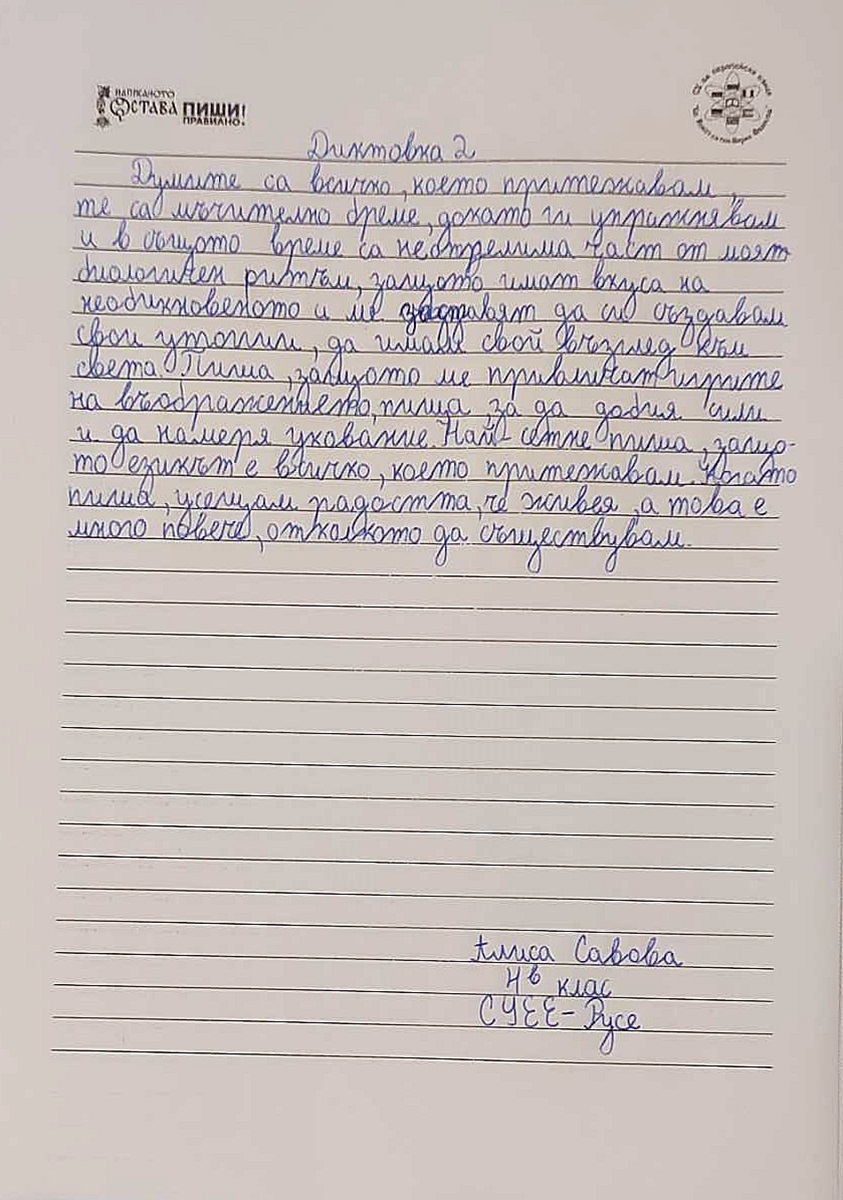 НАПИСАНОТО
ОСТАВА ПИШИ!
ПРАВИЛНО.
Диктовка 2
Думите са всичко, което притежавам,
те са мъчително бреме, докато ги упражнявам
и в същото време са неотделима част от моят
биологичен ритъм, защото имат вкуса на
необикновеното и ме заставят да си създавам
свои утопии, да имам свой възглед към
света. Пиша, защото ме привличат игрите
на въображението, пиша, за да добия сили
и да намеря упование. Най-сетне пиша, защо-
то езикът е всичко, което притежавам. Когато
пиша, усещам радостта, че живея, а това е
много повече, отколкото да съществувам.
Алиса Савова
4в клас
СУЕЕ-Русе